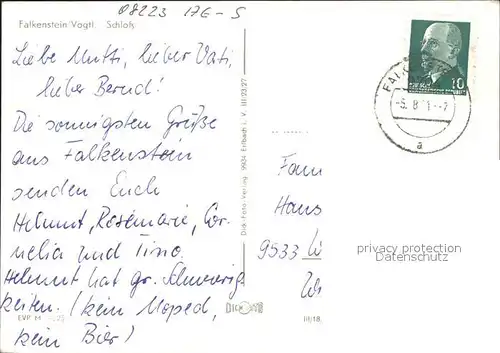 08223 17E-S
Falkenstein/Vogtl. Schloß
Liebe Mutti, lieber Vati,
lieber Bernd!
Die sonnigsten Grüße
aus Falkenstein
senden Euch
Helmut, Rosemarie, Cor-
nelia und Timo.
Helmut hat gr. Schwierig-
keiten. (kein Moped,
kein Bier)
EVP M
Dick-Foto-Verlag 9934 Erlbach i. V. III/23/27
DICK
III/18
10
FALK
-5. 8
a
Fam
Hans
9533
privacy protection
Datenschutz